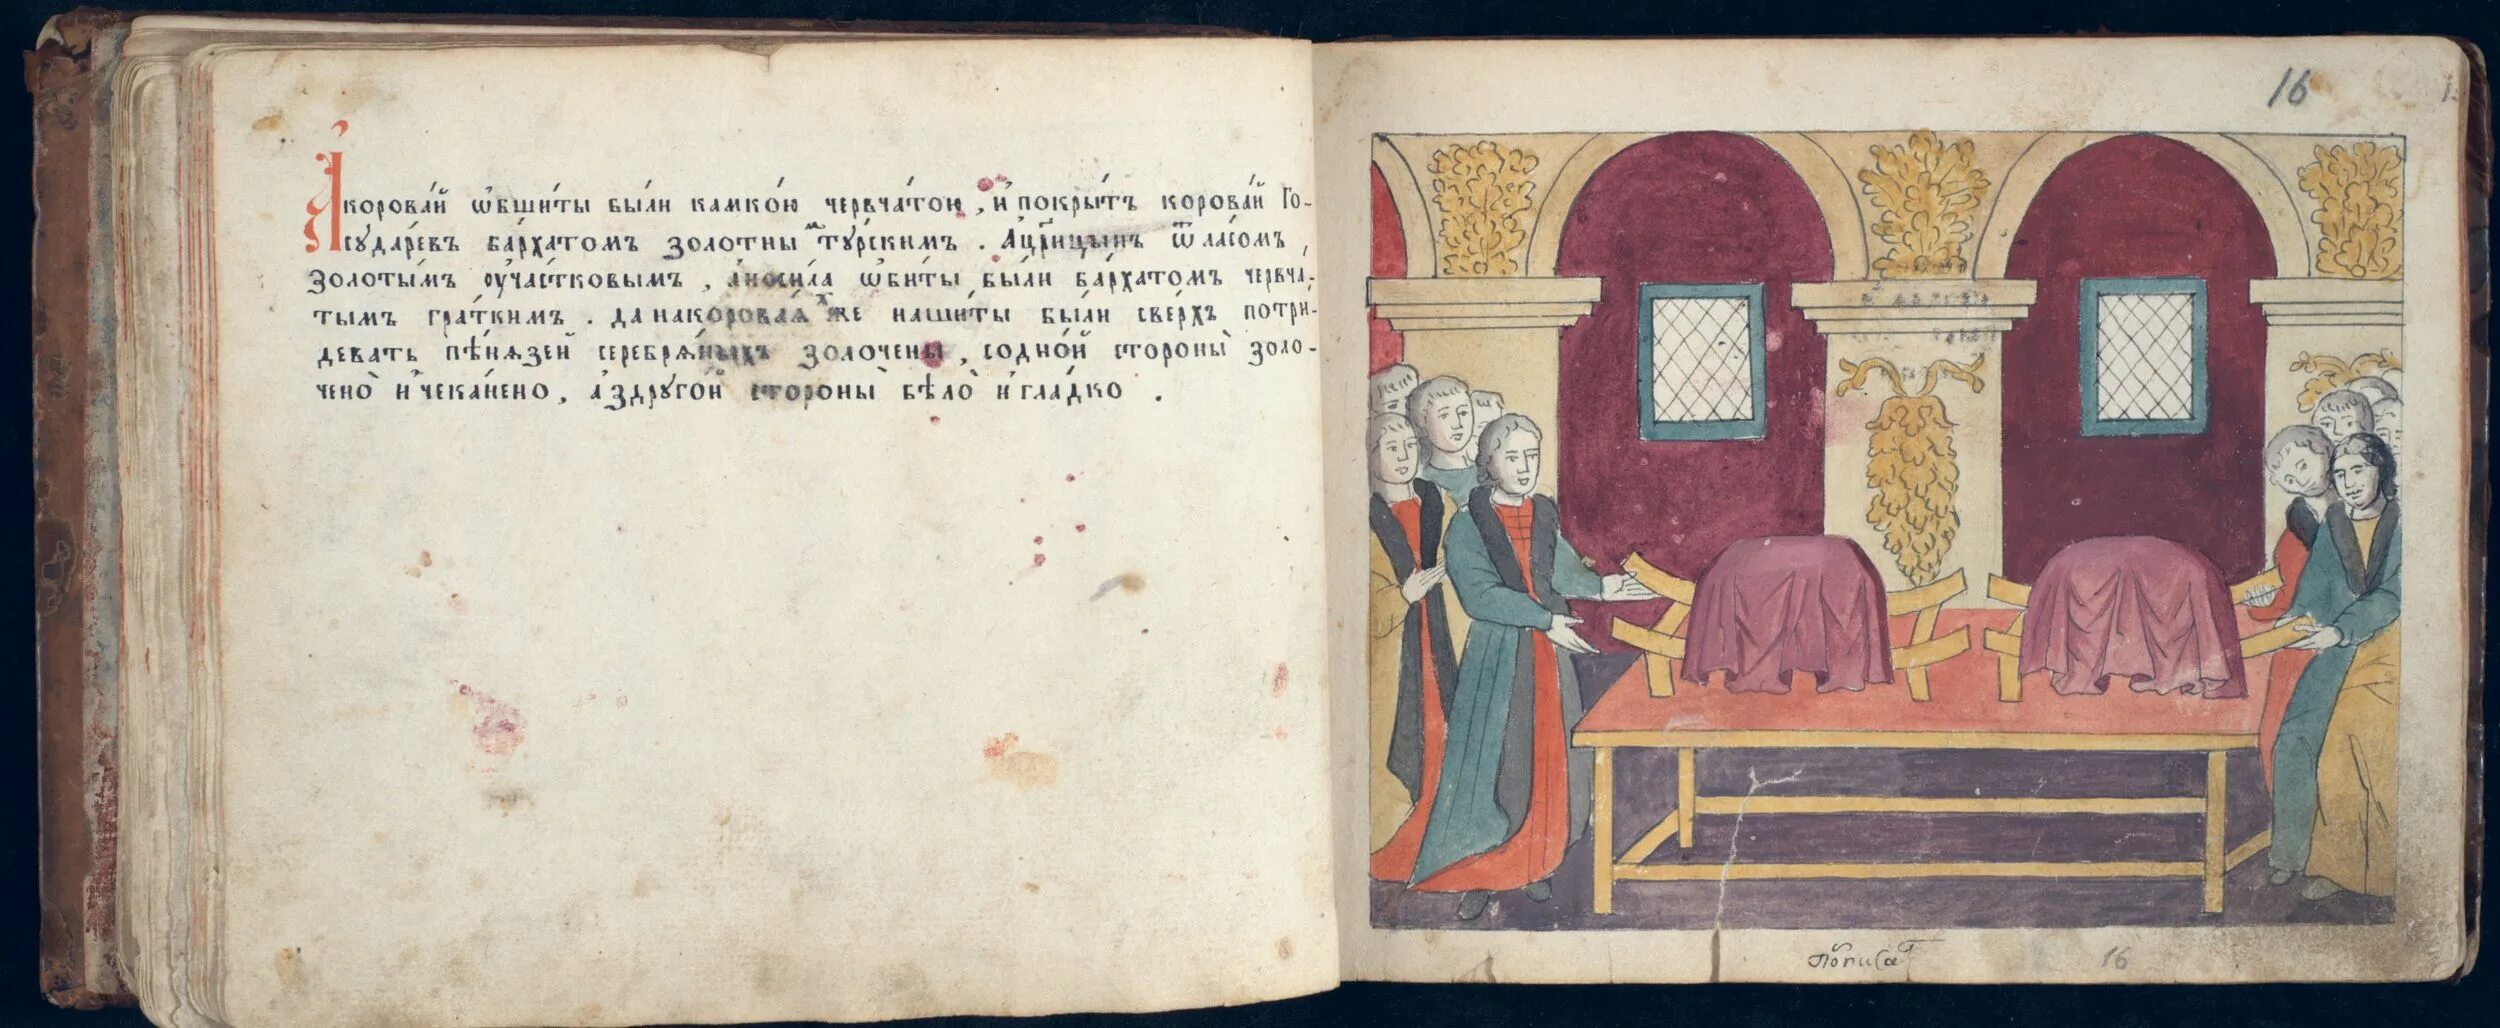 А коровай ѡбшиты были камкою червчатою, и покрытъ коровай Го-
сударевъ бархатомъ золотнымъ турскимъ. А црицынъ ѿласомъ,
золотымъ оучастковымъ, а носила ѡбиты были бархатомъ червча-
тымъ граткимъ. да на короваяхъ же нашиты были сверхъ по три-
девать пѣнязей серебряныхъ золочены, с одной стороны золо-
чено и чеканено, а з другой стороны бѣло и гладко.
16
16